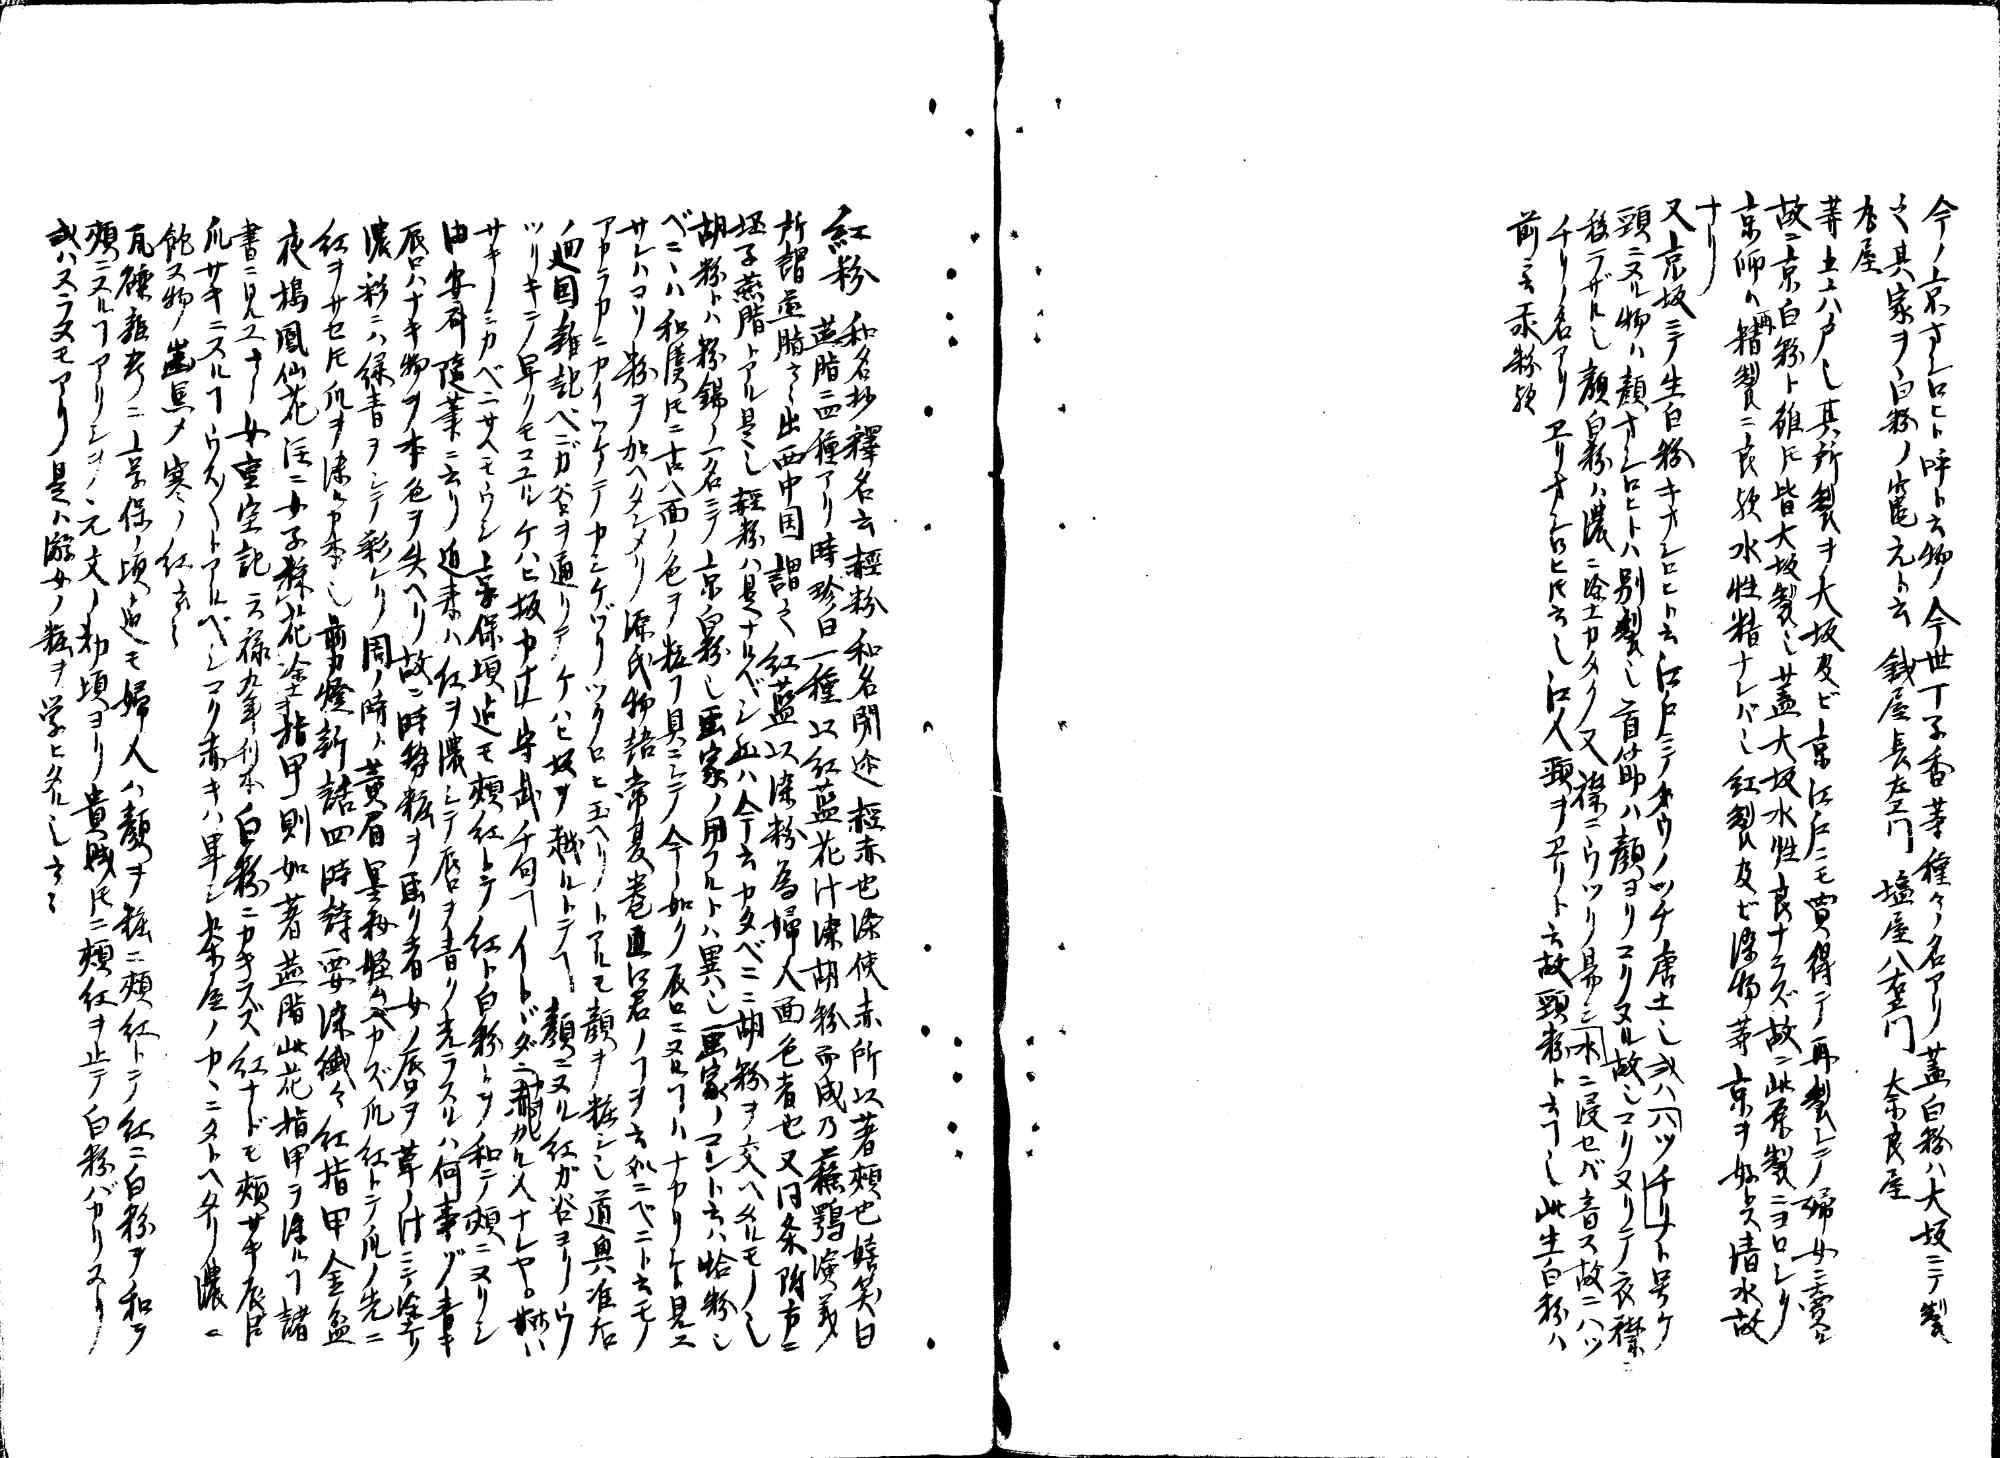 今ノ京オシロヒト呼ト云物ノ今世丁子香等種々ノ名アリ蓋白粉ハ大坂ニテ製
之其家ヲ白粉ノ竈元ト云 銭屋長左ヱ門 塩屋八右ヱ門 奈良屋
屋
等主上ハ戸也其所製ヲ大坂及ビ京江戸ニモ買得テ再製シテ婦女ニ賣ル
故ニ京白粉ト雖トモ皆大坂製也蓋大坂水性良ナラズ故ニ此原製ニヨロシク
京師ハ再精製ニ良歟水性精ナレバ也紅製及ビ染物等京ヲ好トス清水故
ナリ
又京坂ニテ生白粉キオシロヒト云江戸ニテ ウノツチ唐土也或ハハツチリナト号ケ
頸ニヌル物ハ顔オシロヒトハ別製也首筋ハ顔ヨリコクヌル故也コクヌリテ衣襟ニ
移ラザル也顔白粉ハ濃ニ塗ナカタク又襟ニウツリ易シ水ニ浸セバ音ス故ニハツ
チリノ名アリヱリオシロヒトモ云也江人頸ヲヱリト云故頸粉ト云フ也此生白粉ハ
前ニ云 粉歟
紅粉 和名抄釋名云䞓粉和名閇迩䞓赤也染使赤所以著頰也嬉笑曰
燕脂ニ四種アリ時珍曰一種以紅藍花汁染胡粉而成乃蘇鶚演義
所謂燕脂 出西中国謂之紅藍以染粉為婦人面色者也又同条附方ニ
坯子燕脂トアル是也䞓粉ハ是ナルベシ 今云カタベニニ胡粉ヲ交ヘタルモノ也
胡粉トハ粉錫ノ一名ニテ京白粉也畫家ノ用フルトハ異ハ也畫家ノゴフント云ハ蛤粉也
ベニハ和漢トモニ古ハ面ノ色ヲ粧フ具ニシテ今ノ如ク唇ロニヌルコトハナカリシト見ユ
サレハコソ粉ヲ加ヘタンメリ源氏物語常夏巻近江君ノコトヲ云処ニベニト云モノ
アカラカニカイツケテカミケヅリツクロヒ玉ヘリトアルモ顔ヲ粧シ也道興准后
ノ廻国雑記ベニガ谷ヲ通リテケハヒ坂ヲ越ルトテ 顔ニヌル紅ガ谷ヨリウ
ツリキテ早クモコユルケハヒ坂カナ 守武千句ニ イトヾダニ赤カル人ナレヤ 
サキノミカベニサスモウシ 享保頃迄モ頰紅トテ紅ト白粉トヲ和ニテ頰ニヌリシ
由安斎随筆ニ云リ近来ハ紅ヲ濃シテ唇ヲ青ク光ラスルハ何事ゾ青キ
唇ハナキ物ヲ本色ヲ失ヘリ故ニ時勢粧ヲ画ク者女ノ唇ヲ草ノ汁ニテ塗リ
濃彩ニハ緑青ヲシテ彩ケリ 周ノ時ト黄眉墨粧 カズ爪紅トテ爪ノ先ニ
紅ヲサセトモ爪ヲ染タカ本也 剪燈新話四時詩要染纖々紅指甲金盆
夜搗鳳仙花注ニ女子採花塗指甲則如著燕脂此花指甲ヲ染ルコト諸
書ニ見エタリ女重宝記元禄九年刊本 白粉ニカキラズ紅ナドモ頰サキ唇
爪サキニスルコトウス〱トアルベシマリ赤キハ卑シ茶屋ノカヽニタトヘタリ濃ニ
飽ス物ノ 寒ノ紅云々
瓦礫雑考ニ享保ノ頃迄モ婦人ハ顔ヲ粧ニ頰紅トテ紅ニ白粉ヲ和テ
頰ニヌルコトアリシヲ元文ノ初頃ヨリ貴賎トモニ頰紅ヲ止テ白粉バカリヌリ
或ハヌラヌモアリ是ハ遊女ノ粧ヲ学ヒタル也云々